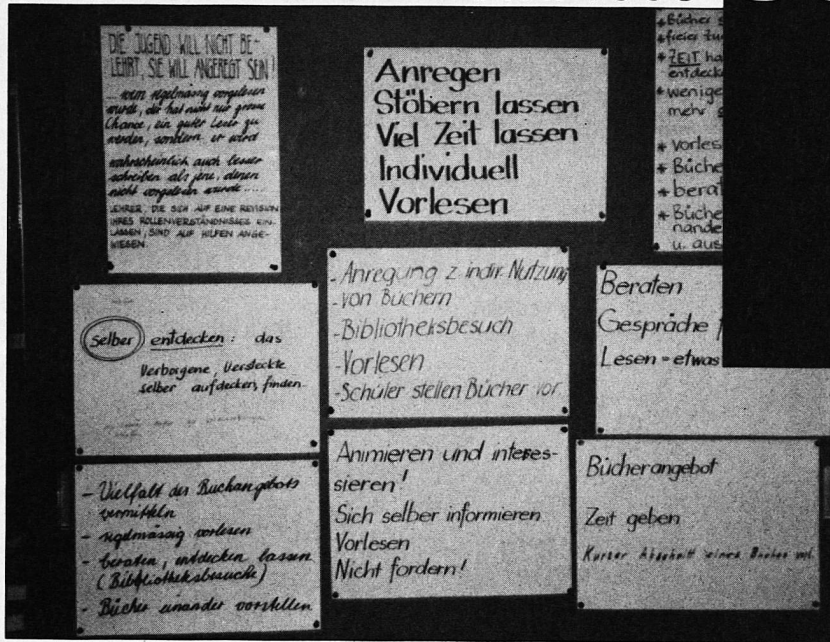 DIE JUGEND WILL NICHT BE-
LEHRT, SIE WILL ANGEREGT SEIN!
... wem regelmässig vorgelesen
wurde, der hat nicht nur grosse
Chance, ein guter Leser zu
werden, sondern er wird
wahrscheinlich auch besser
schreiben als jene, denen
nicht vorgelesen wurde ....
LEHRER, DIE SICH AUF EINE REVISION
IHRES ROLLENVERSTÄNDNISSES EIN-
LASSEN, SIND AUF HILFEN ANGE-
WIESEN.
Anregen
Stöbern lassen
Viel Zeit lassen
Individuell
Vorlesen
* Bücher
* freier
* ZEIT ha
entdeck
* wenige
mehr
* vorles
* Büche
* berat
* Büche
nande
u. aus
selber entdecken: das
Verborgene, Versteckte
selber aufdecken, finden.
- Anregung z. indiv. Nutzung
- von Büchern
- Bibliotheksbesuch
- Vorlesen
- Schüler stellen Bücher vor
Beraten
Gespräche
Lesen = etwas
- Vielfalt des Buchangebots
vermitteln
- regelmässig vorlesen
- beraten, entdecken lassen
(Bibliotheksbesuche)
- Bücher einander vorstellen
Animieren und interes-
sieren!
Sich selber informieren
Vorlesen
Nicht fordern!
Bücherangebot
Zeit geben
Kurzer Abschnitt eines Buches